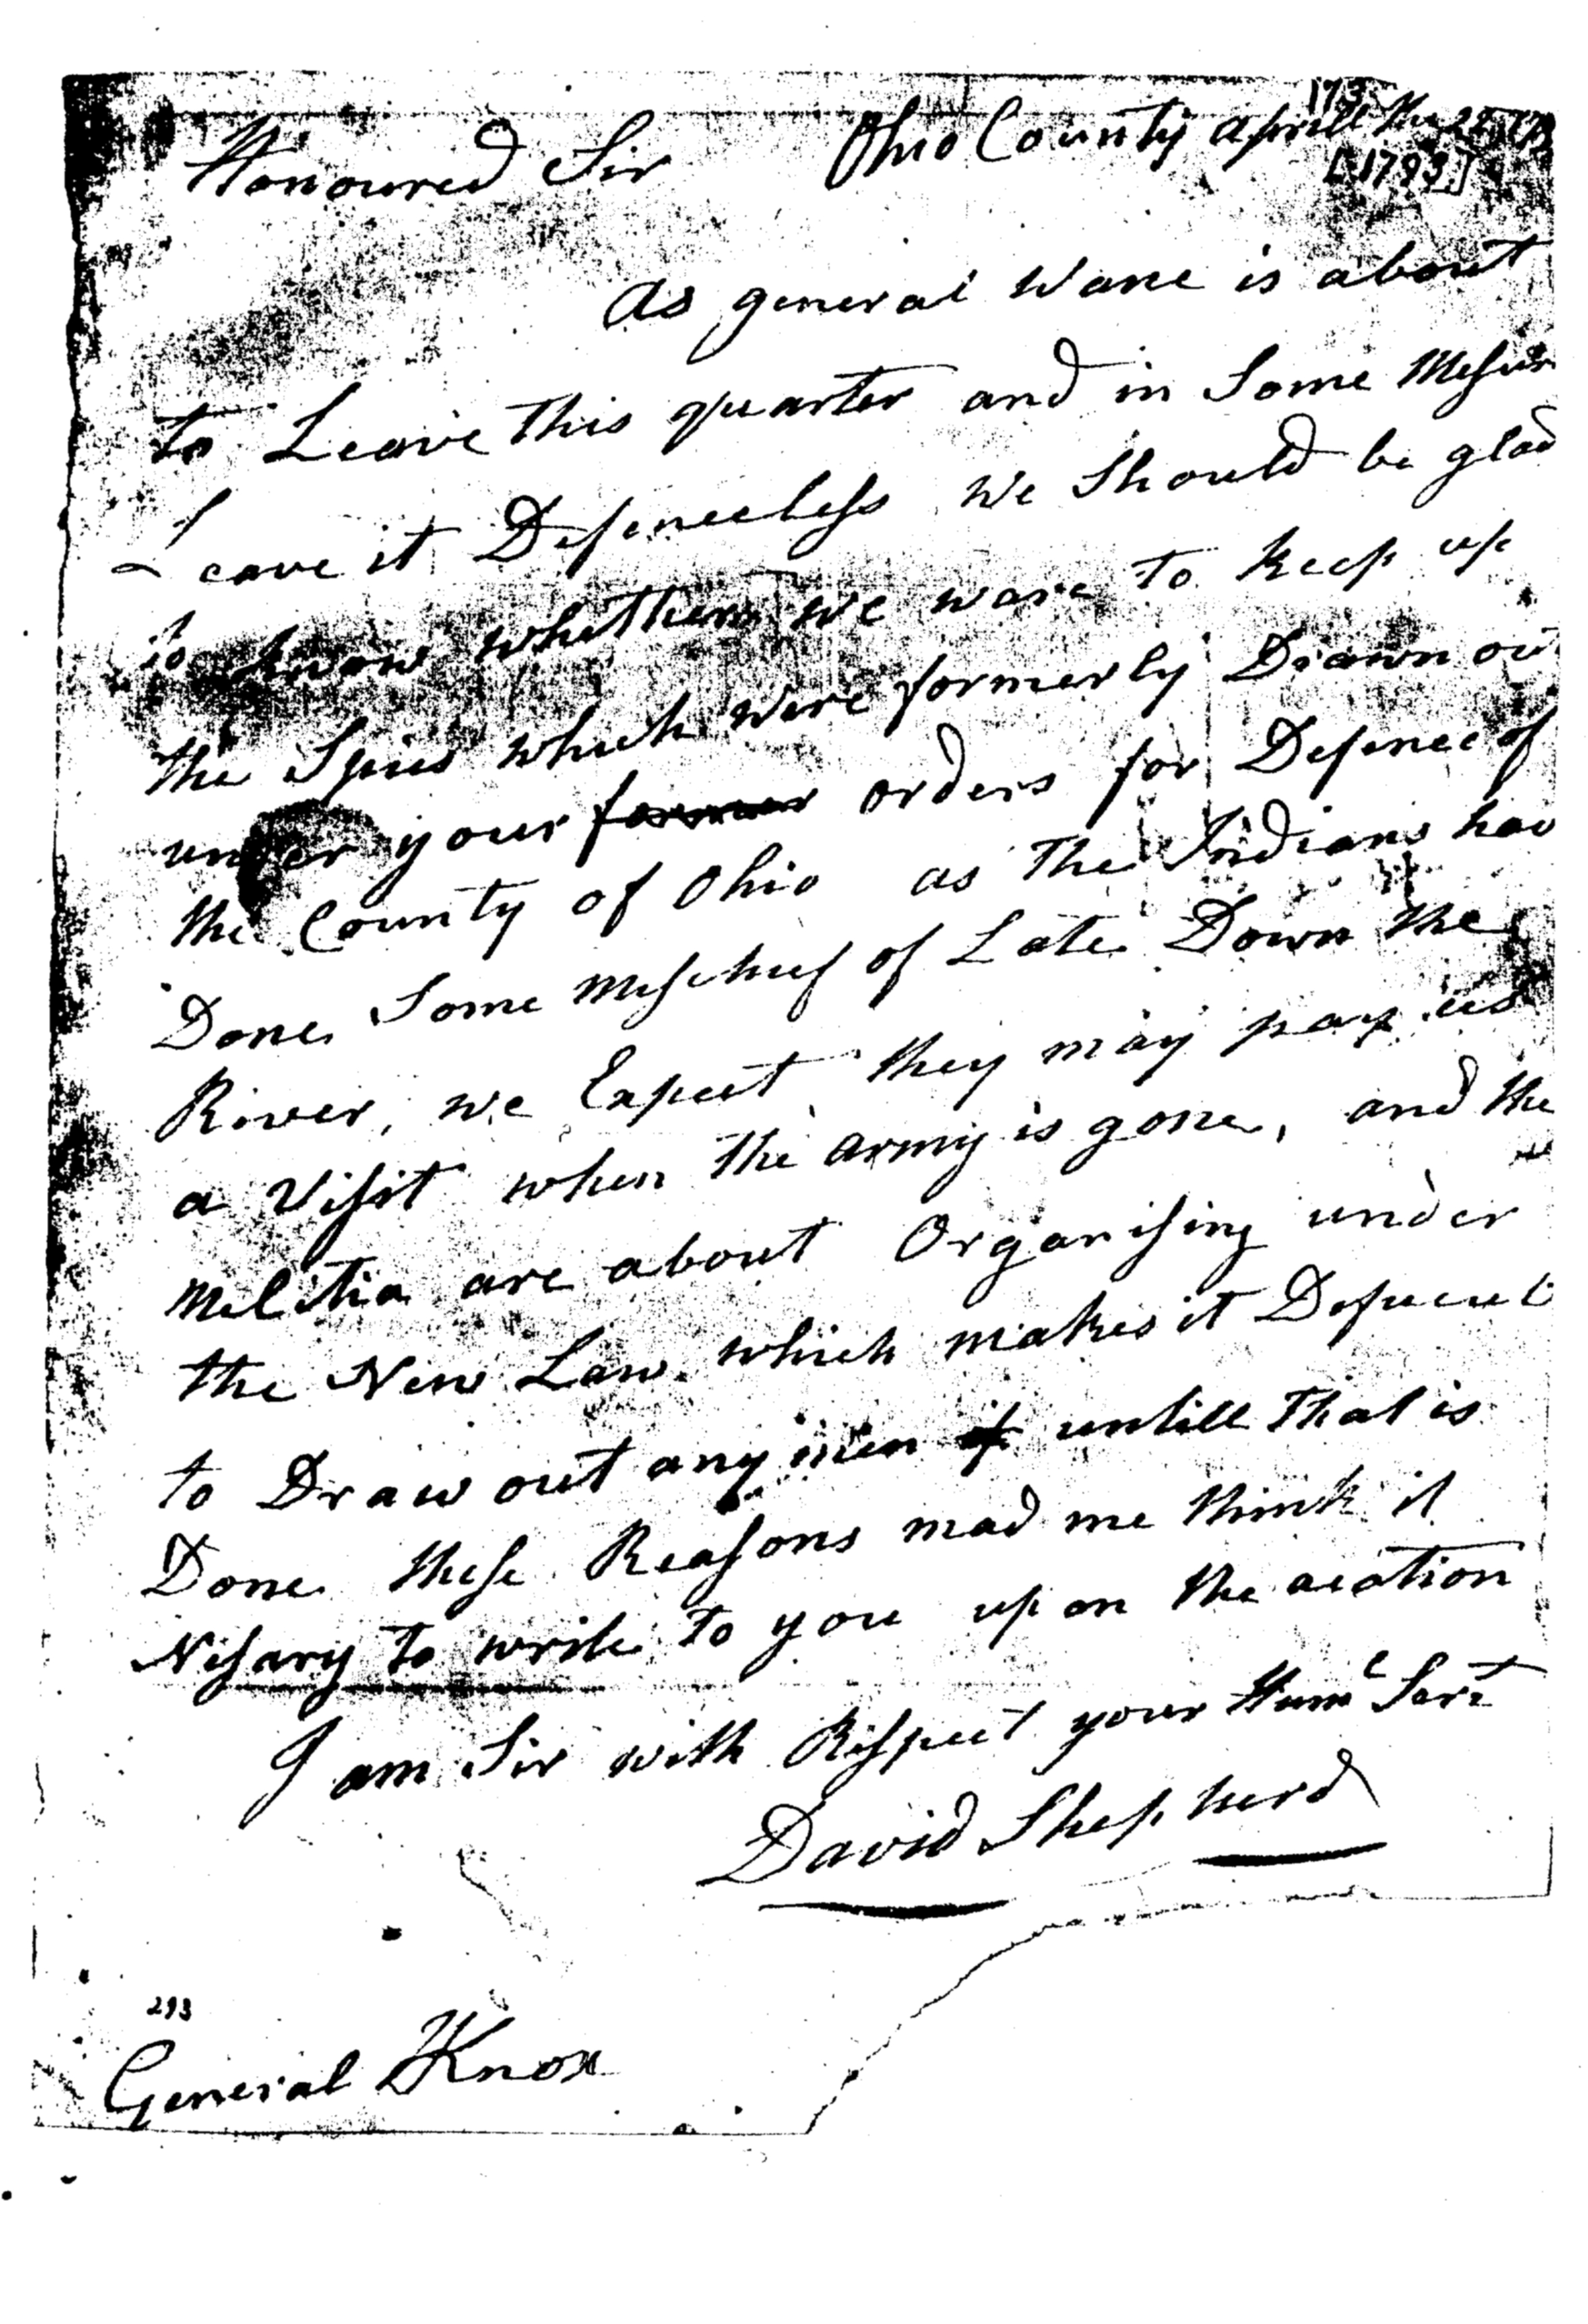 173
Honoured Sir Ohio County aprill the 22
[1793]
As general Wane is about
to Leave this quarter and in Some Mesure
Leave it Defenceless we Should be glad
to know whether we ware to keep up
the Spies which were formerly Drawn out
under your former orders for Defence of
the County of Ohio as the Indians have
Done Some Mischief of Late Down the
River, we Expect they may pay us
a Visit when the army is gone, and the
Melitia are about Organising under
the New Law which makes it
to Draw out any men if untill that is
Done these Reasons mad me think it
Nisary to write to you upon the
I am Sir with Respect your Hume Sert
David Shepherd
293
General Knox